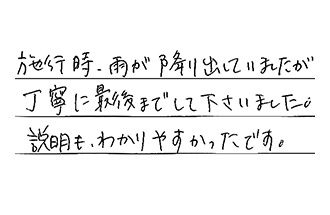 施行時、雨が降り出していましたが
丁寧に最後までして下さいました。
説明も、わかりやすかったです。